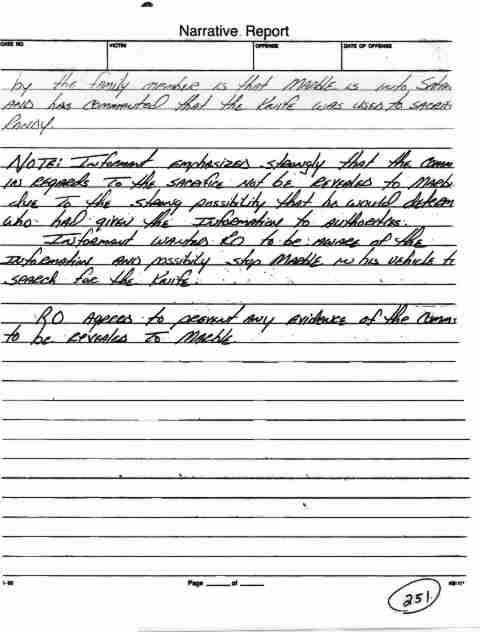 Narrative Report
CASE NO. VICTIM OFFENSE DATE OF OFFENSE
by the family member is that Marble is into Satan
and has commented that the knife was used to sacrifi
Randy.
NOTE: Informant emphasized strongly that the comm
in regards to the sacrifice not be revealed to Marb
due to the strong possibility that he would determ
who had given the information to authorities.
Informant wanted RO to be aware of the
information and possibily stop Marble in his vehicle t
search for the knife.
RO agreed to prevent any evidence of the comm
to be revealed to Marble.
Page ____ of ____
251